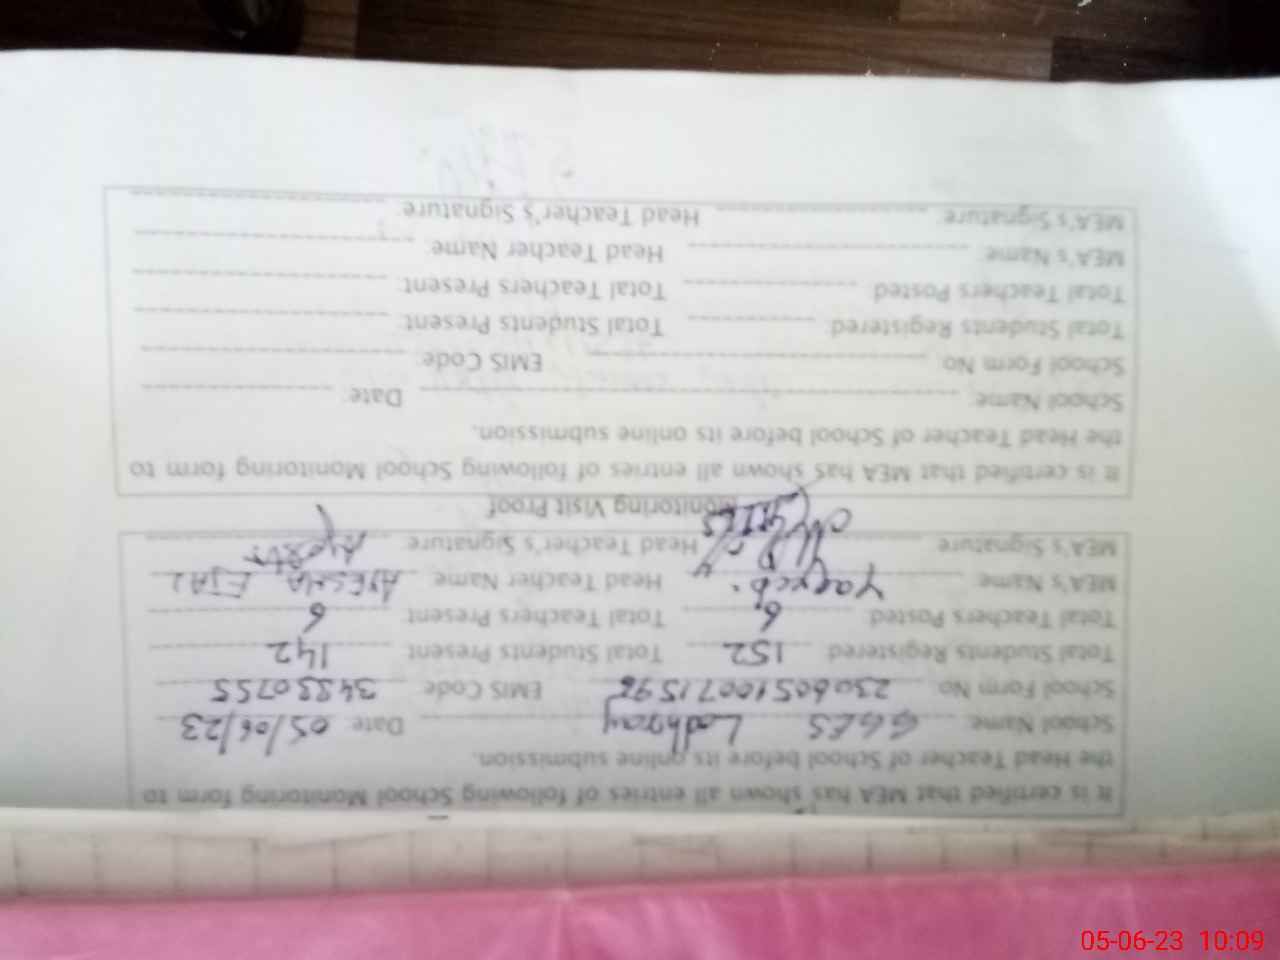 It is certified that MEA has shown all entries of following School Monitoring form to
the Head Teacher of School before its online submission.
School Name: GGES Ladhray Date: 05/06/23
School Form No: EMIS Code: 34330755
Total Students Registered: 152 Total Students Present: 142
Total Teachers Posted: 6 Total Teachers Present: 6
MEA's Name: Yaqueb Head Teacher Name: AYESHA EJAZ
MEA's Signature: Head Teacher's Signature:
Monitoring Visit Proof
It is certified that MEA has shown all entries of following School Monitoring form to
the Head Teacher of School before its online submission.
School Name: Date:
School Form No: EMIS Code:
Total Students Registered: Total Students Present:
Total Teachers Posted: Total Teachers Present:
MEA's Name: Head Teacher Name:
MEA's Signature: Head Teacher's Signature:
05-06-23 10:09